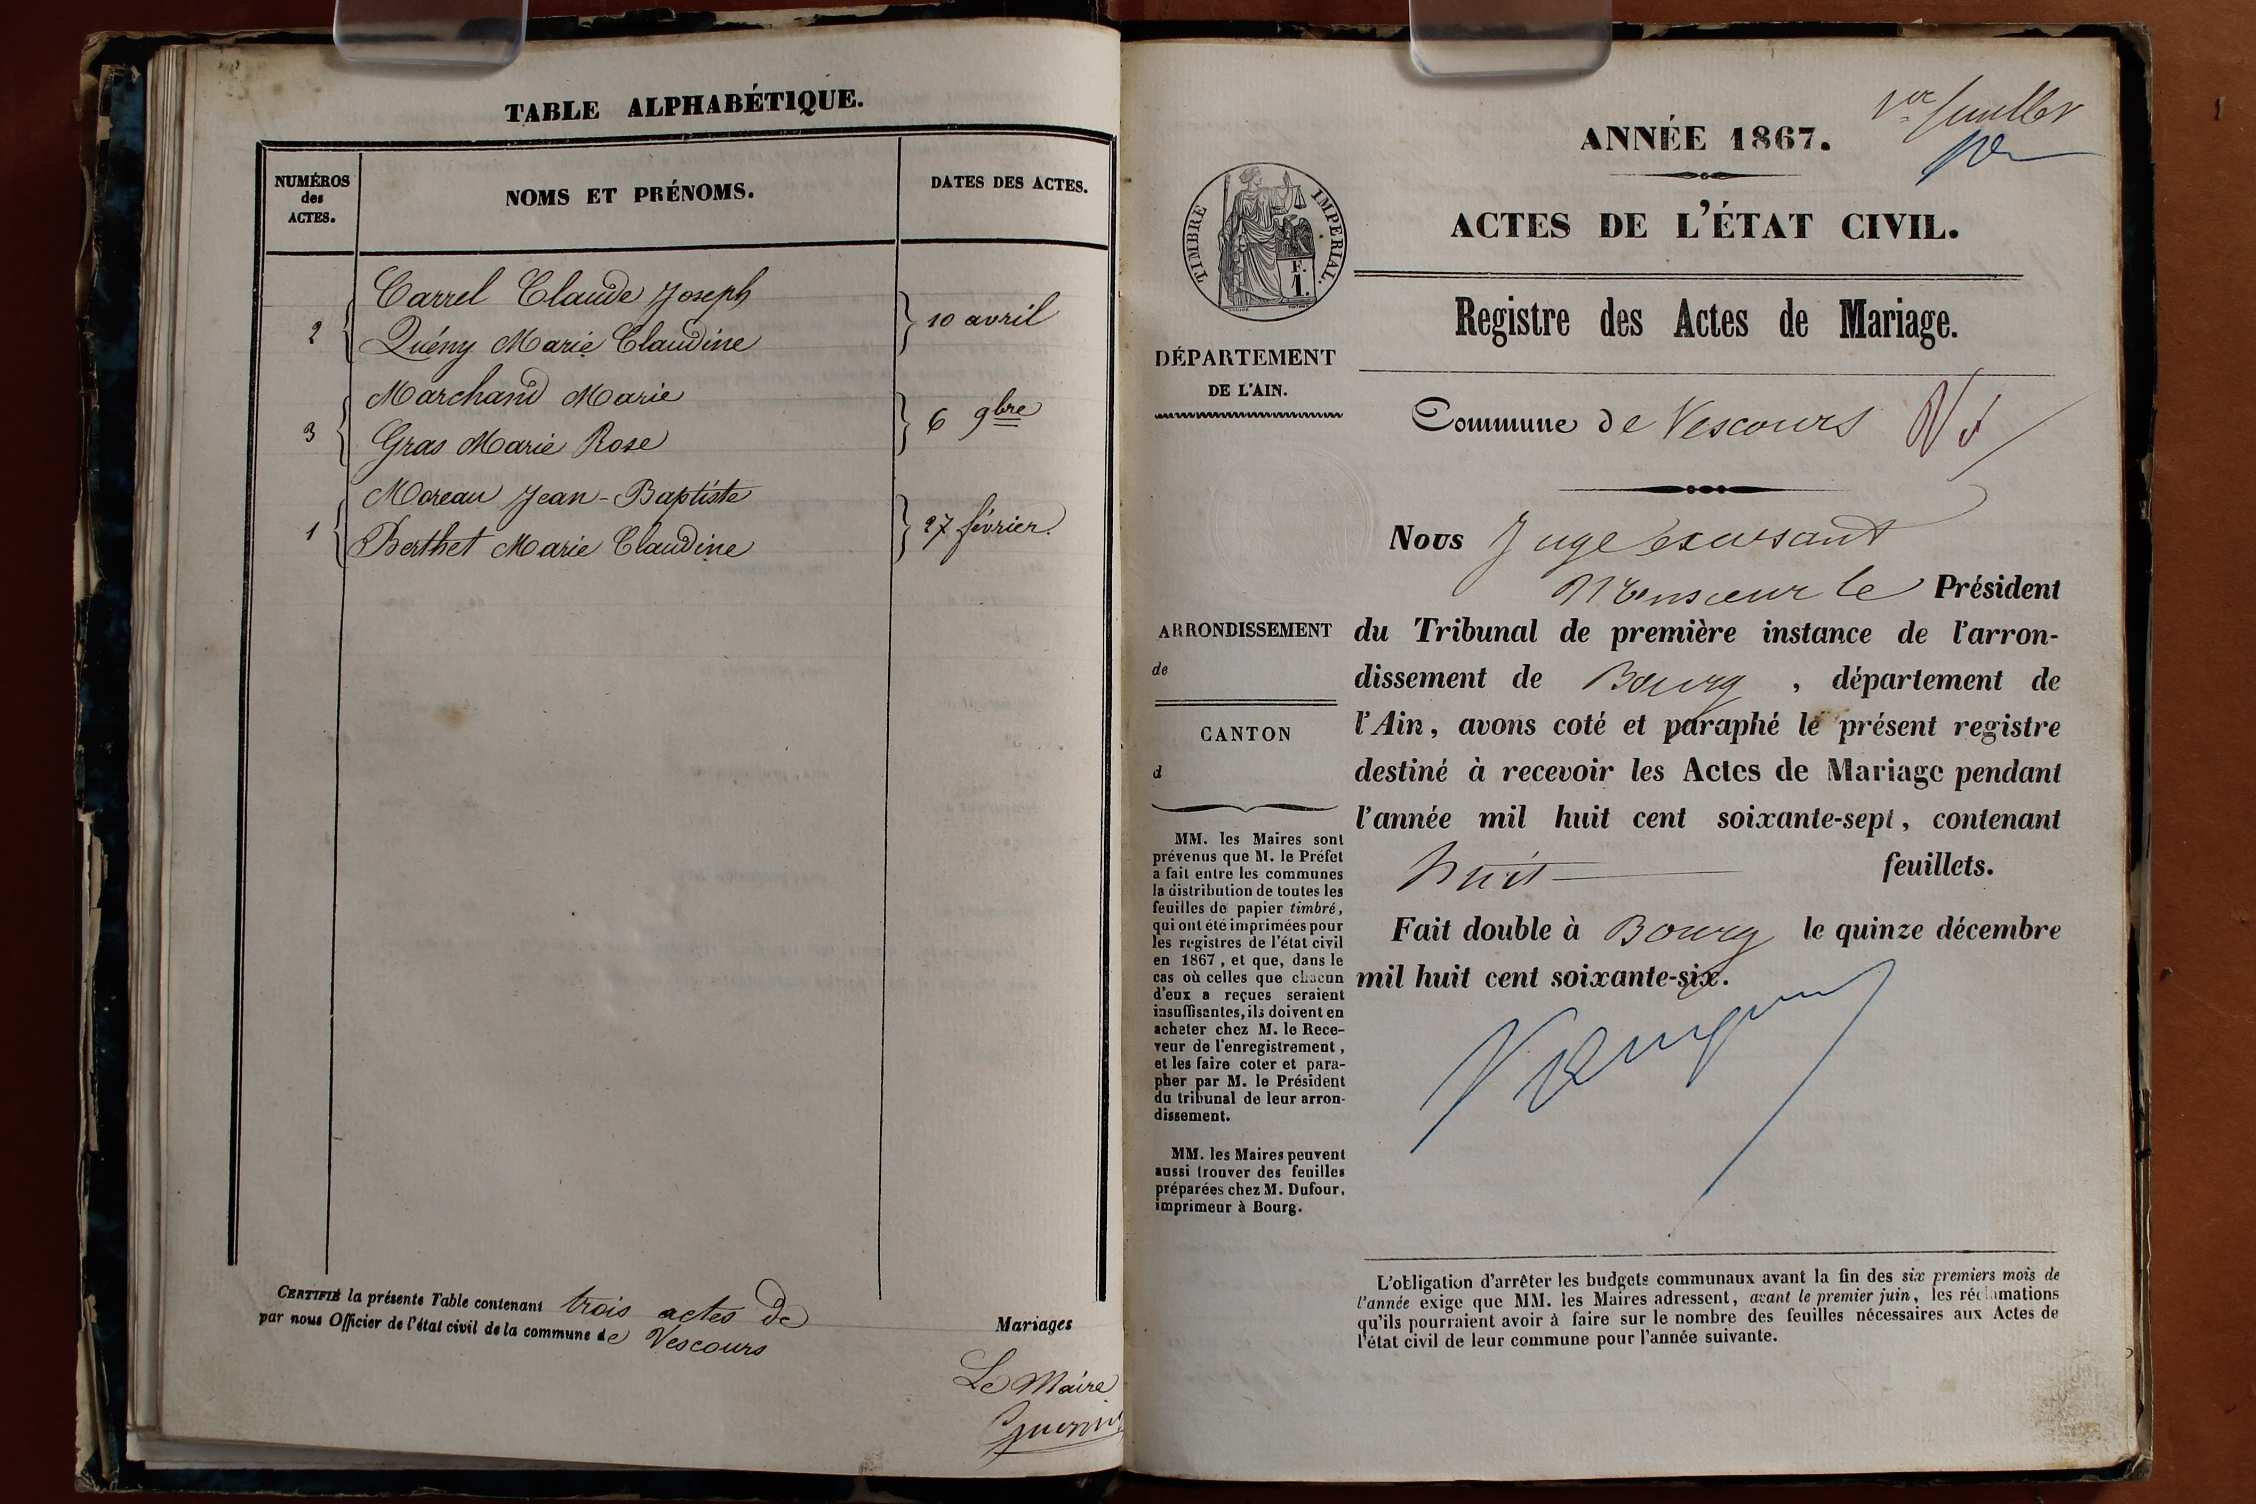 TABLE ALPHABÉTIQUE.
NUMÉROS
des
ACTES.
NOMS ET PRÉNOMS.
DATES DES ACTES.
Carrel Claude Joseph
2
10 avril
Quény Marie Claudine
Marchand Marie
3
6 9bre
Gras Marie Rose
Moreau Jean-Baptiste
1
27 février
Berthet Marie Claudine
CERTIFIÉ la présente Table contenant trois actes de
Mariages
par nous Officier de l'état civil de la commune de Vescours
Le Maire
1er feuillet
ANNÉE 1867.
TIMBRE IMPERIAL.
F.
1.
ACTES DE L'ÉTAT CIVIL.
Registre des Actes de Mariage.
DÉPARTEMENT
DE L'AIN.
Commune de Vescours
Nous Juge
Monsieur le Président
ARRONDISSEMENT
de
CANTON
d
du Tribunal de première instance de l'arron-
dissement de Bourg, département de
l'Ain, avons coté et paraphé le présent registre
destiné à recevoir les Actes de Mariage pendant
l'année mil huit cent soixante-sept, contenant
huit feuillets.
Fait double à Bourg le quinze décembre
mil huit cent soixante-six.
MM. les Maires sont
prévenus que M. le Préfet
a fait entre les communes
la distribution de toutes les
feuilles de papier timbré,
qui ont été imprimées pour
les registres de l'état civil
en 1867, et que, dans le
cas où celles que chacun
d'eux a reçues seraient
insuffisantes, ils doivent en
acheter chez M. le Rece-
veur de l'enregistrement,
et les faire coter et para-
pher par M. le Président
du tribunal de leur arron-
dissement.
MM. les Maires peuvent
aussi trouver des feuilles
préparées chez M. Dufour,
imprimeur à Bourg.
L'obligation d'arrêter les budgets communaux avant la fin des six premiers mois de
l'année exige que MM. les Maires adressent, avant le premier juin, les réclamations
qu'ils pourraient avoir à faire sur le nombre des feuilles nécessaires aux Actes de
l'état civil de leur commune pour l'année suivante.